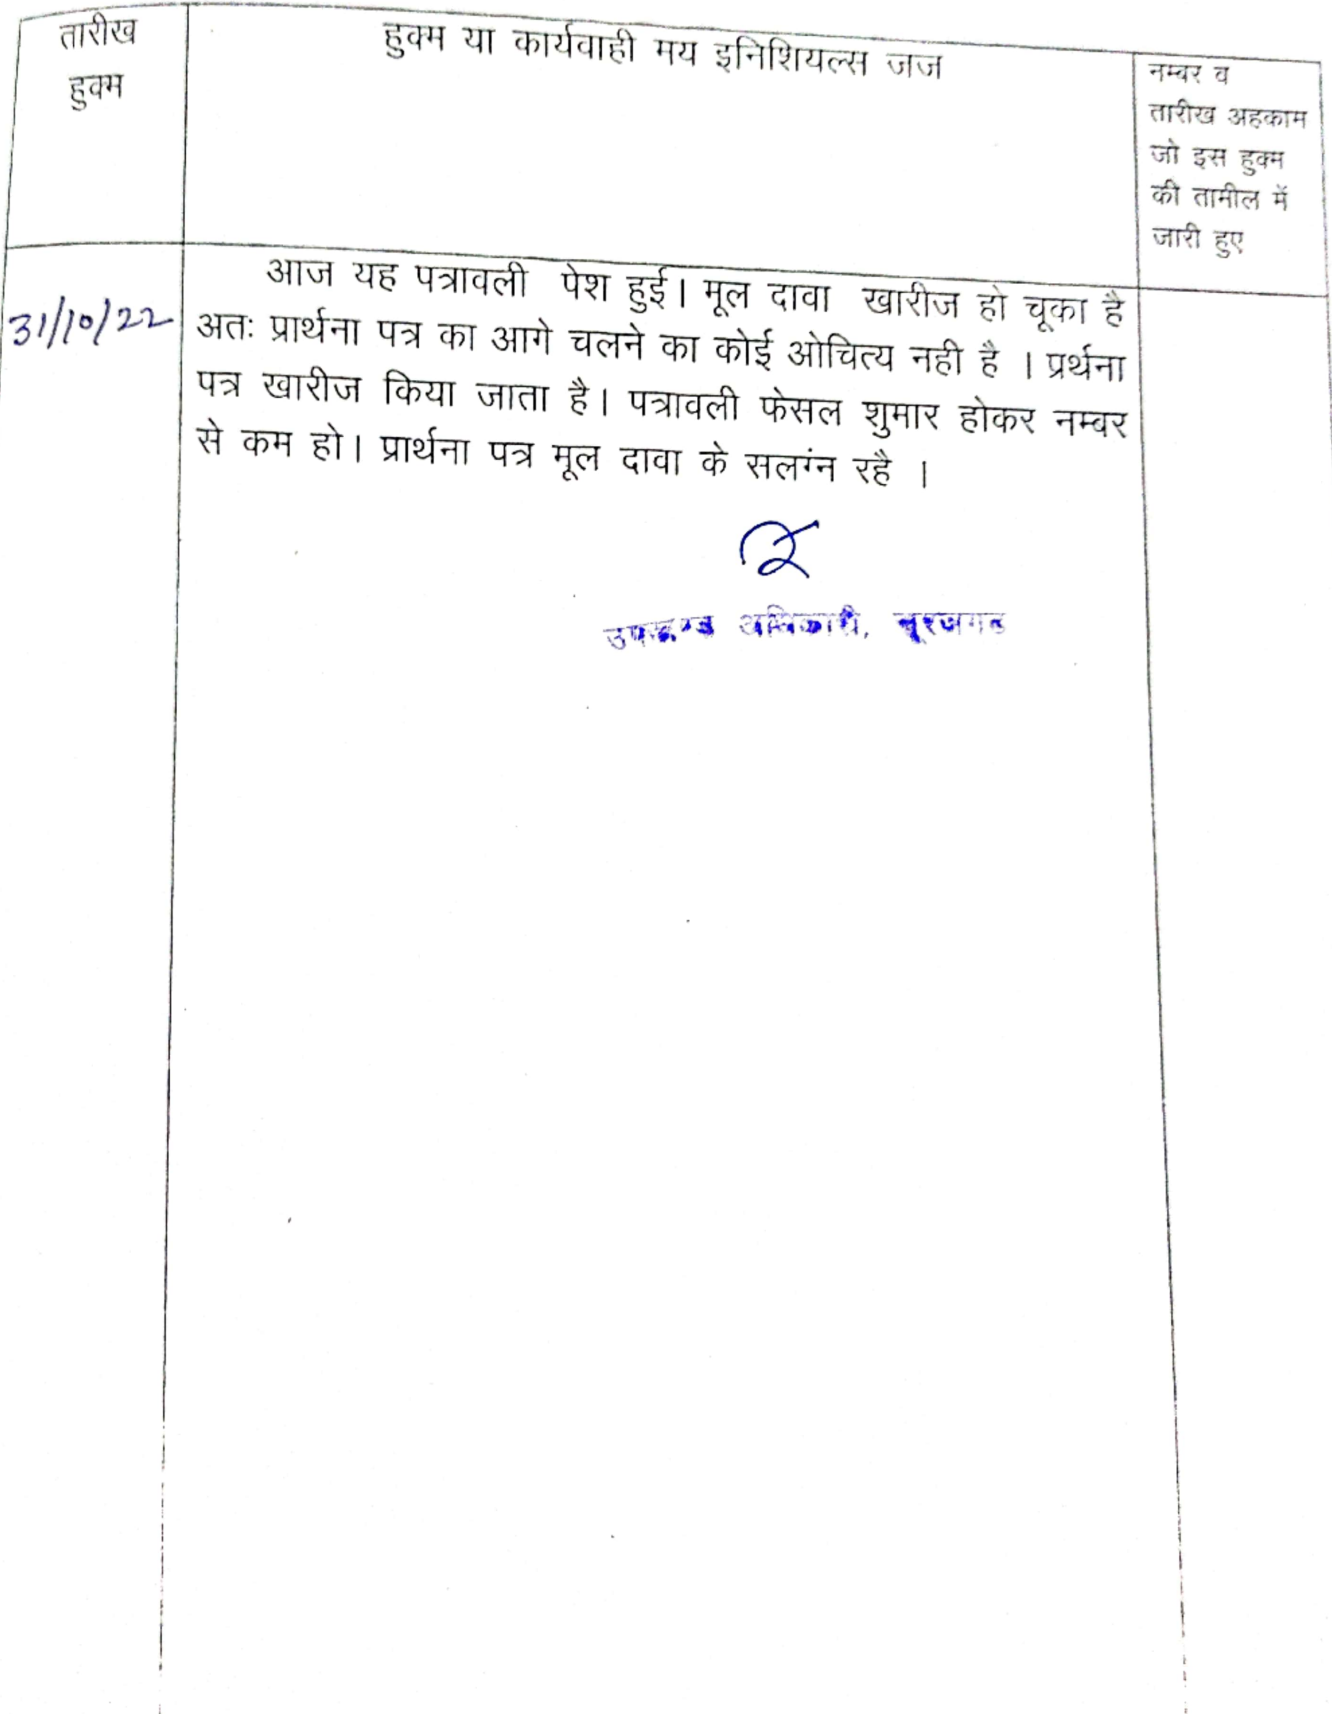 तारीख
हुक्म
हुक्म या कार्यवाही मय इनिशियल्स जज
नम्बर व
तारीख अहकाम
जो इस हुक्म
की तामील में
जारी हुए
31/10/22
आज यह पत्रावली पेश हुई। मूल दावा खारीज हो चूका है
अतः प्रार्थना पत्र का आगे चलने का कोई ओचित्य नही है । प्रर्थना
पत्र खारीज किया जाता है। पत्रावली फेसल शुमार होकर नम्बर
से कम हो। प्रार्थना पत्र मूल दावा के सलग्ंन रहै ।
उपखण्ड अधिकारी, सूरजगढ